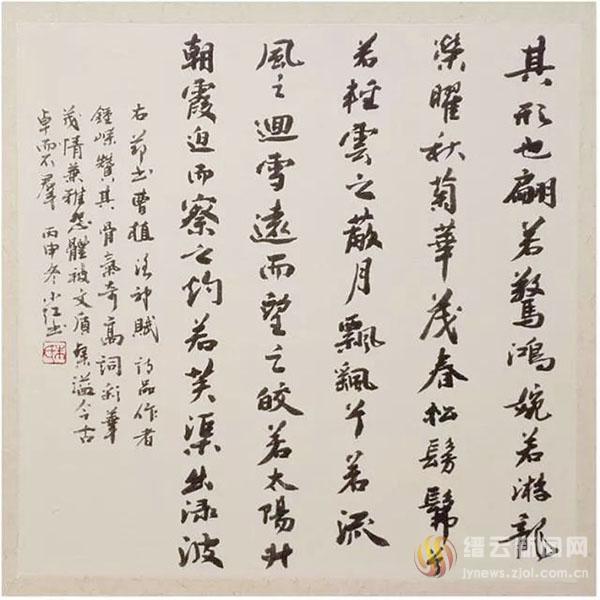 其形也翩若驚鴻婉若游龍
榮曜秋菊華茂春松髣髴兮
若輕雲之蔽月飄颻兮若流
風之迴雪遠而望之皎若太陽升
朝霞迫而察之灼若芙渠出渌波
右節书曹植洛神賦詩品作者
鍾嶸贊其骨氣奇高詞彩華
茂情兼雅怨體被文質粲溢今古
卓而不羣 丙申冬小江书
缙云新闻网
jynews.zjol.com.cn